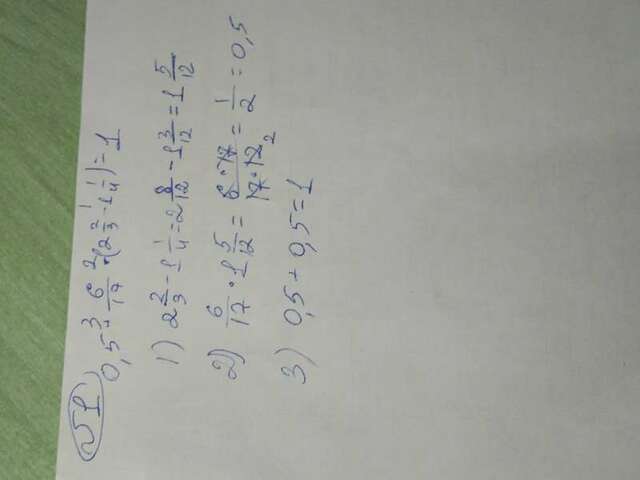 №1
0,5 + 6/17 · (2 2/3 - 1 1/4) = 1
1) 2 2/3 - 1 1/4 = 2 8/12 - 1 3/12 = 1 5/12
2) 6/17 · 1 5/12 = 6·17/17·12 2 = 1/2 = 0,5
3) 0,5 + 0,5 = 1